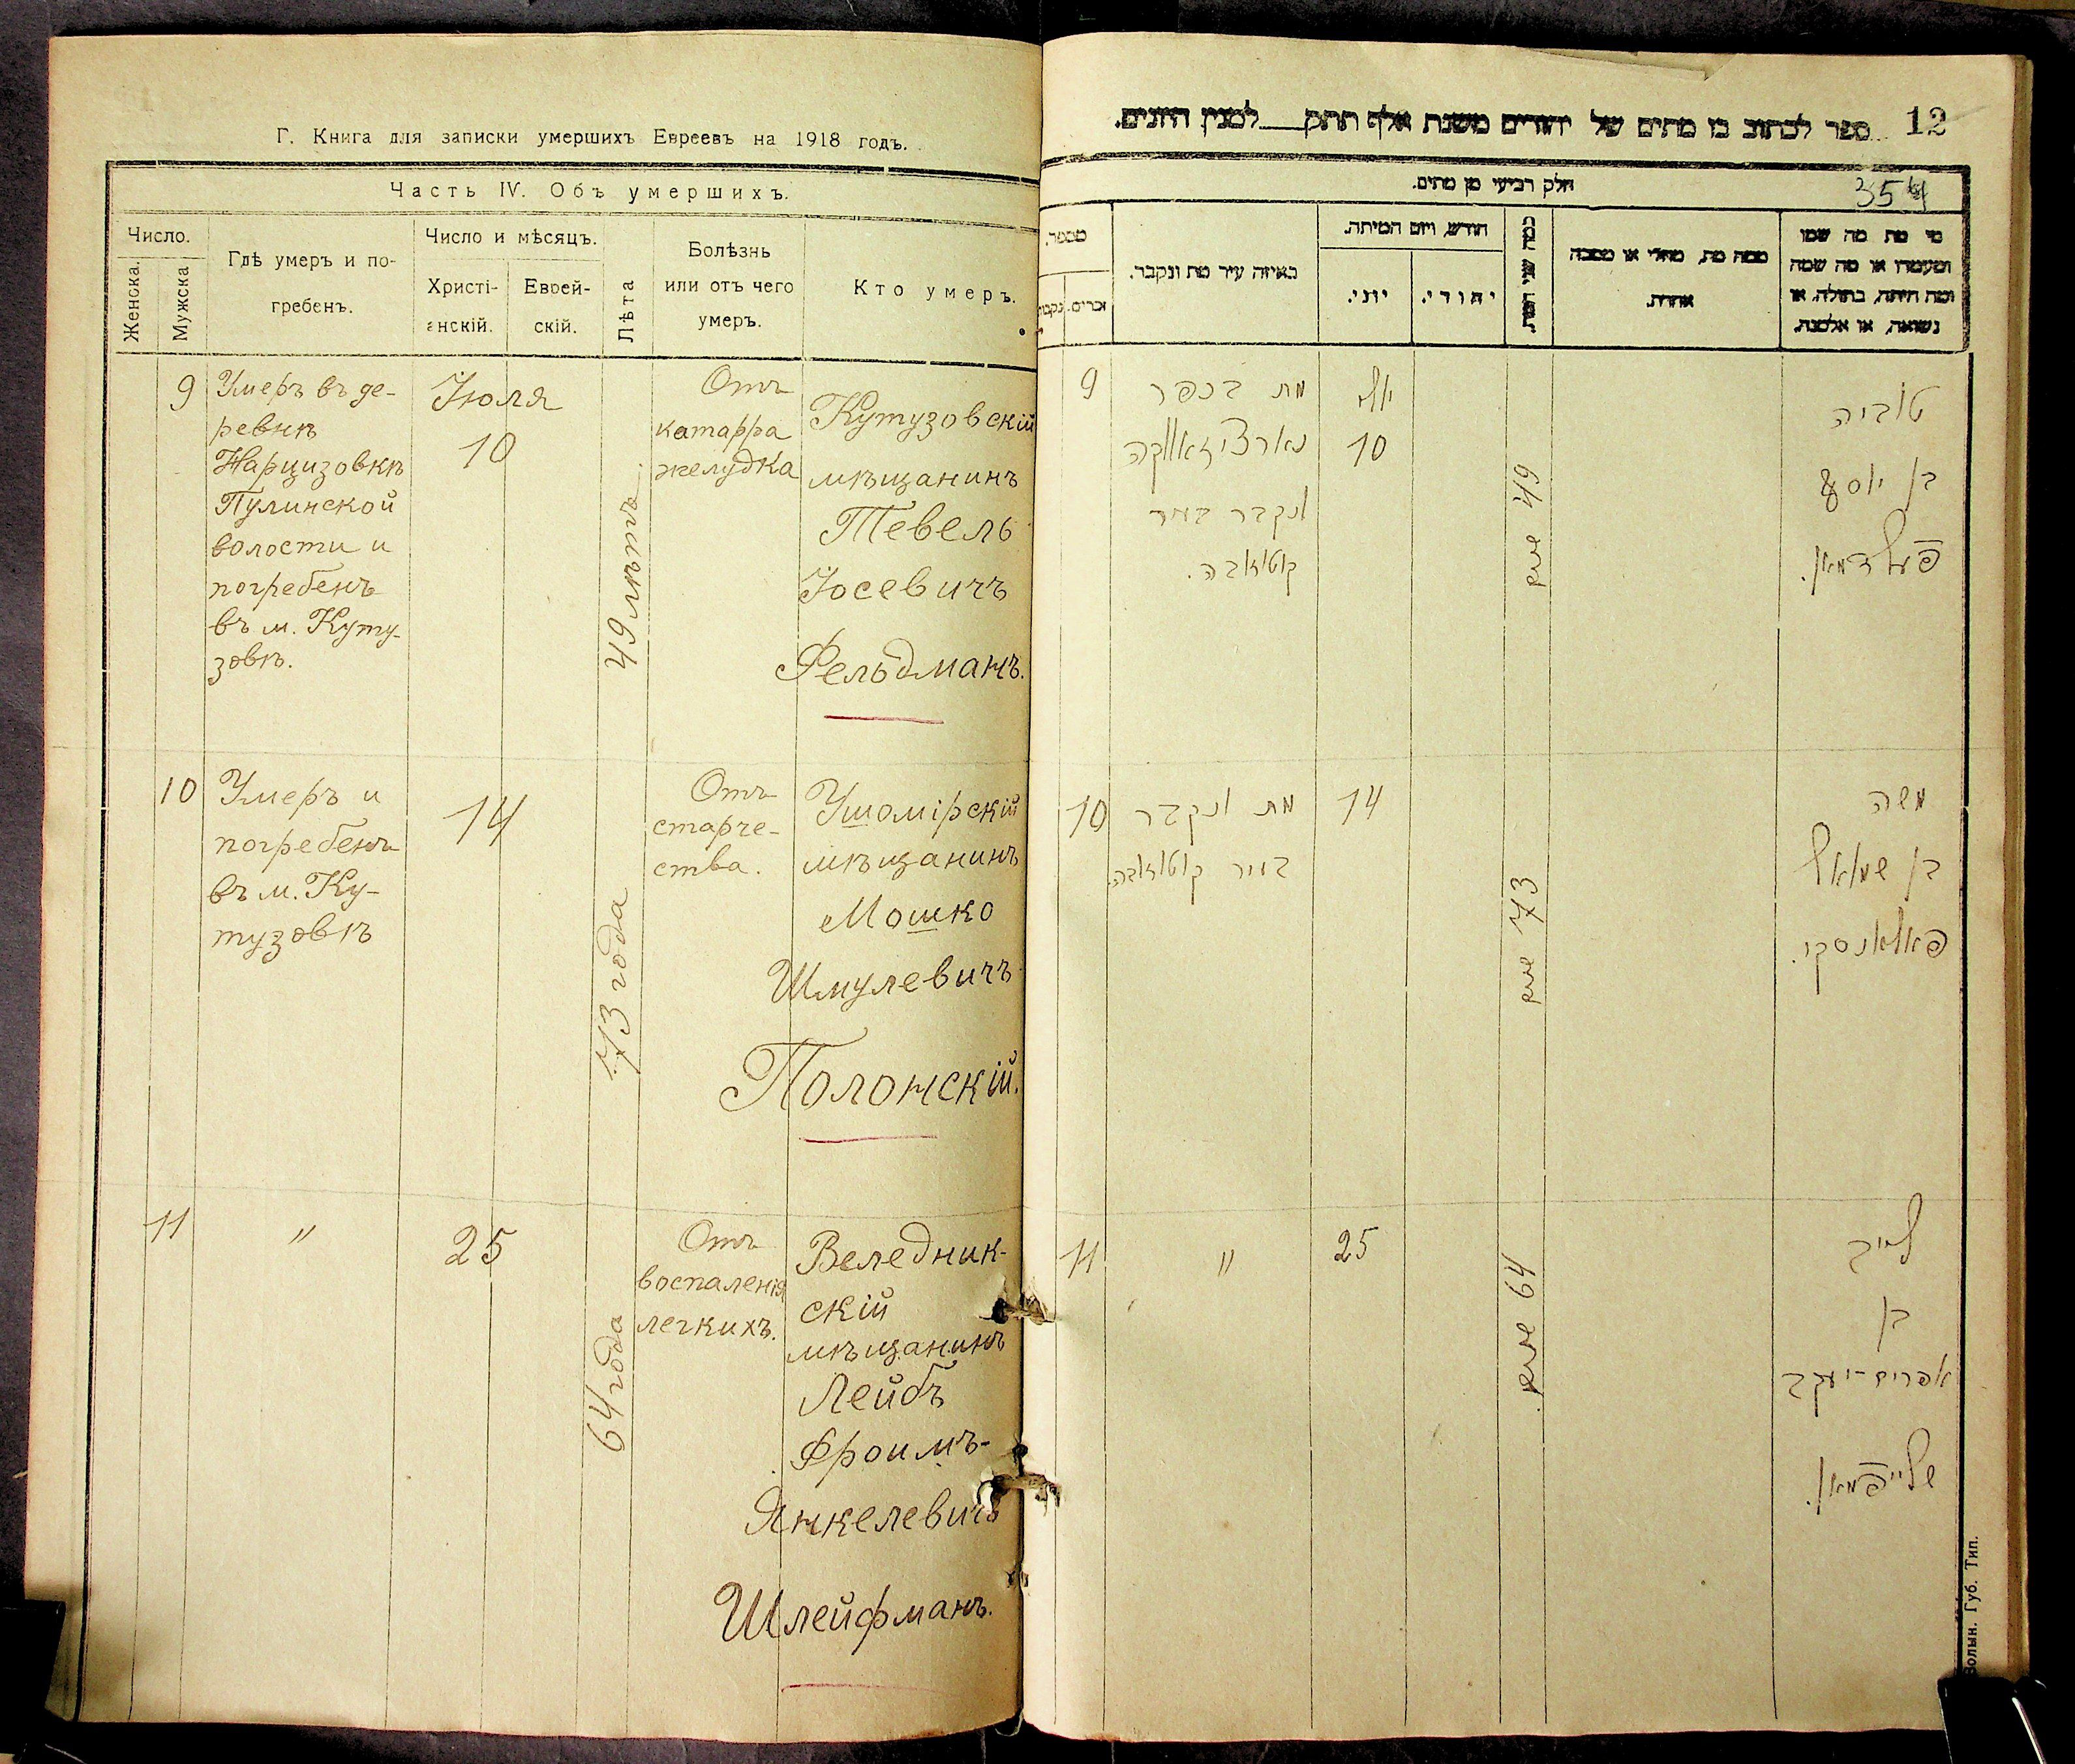 Г. Книга для записки умершихъ Евреевъ на 1918 годъ.
Часть IV. Объ умершихъ.
Число.
Женска.
Мужска
Гдѣ умеръ и по-
гребенъ.
Число и мѣсяцъ.
Христі-
анскій.
Еврей-
скій.
Лѣта
Болѣзнь
или отъ чего
умеръ.
Кто умеръ.
9
Умеръ въ де-
ревнѣ
Нарцизовкѣ
Пулинской
волости и
погребенъ
въ м. Куту-
зовѣ.
Іюля
10
49 лѣтъ
Отъ
катарра
желудка
Кутузовскій
мѣщанинъ
Тевель
Іосевичъ
Фельдманъ.
10
Умеръ и
погребенъ
въ м. Ку-
тузовѣ
14
73 года
Отъ
старче-
ства.
Ушомірскій
мѣщанинъ
Мошко
Шмулевичъ
Полонскій.
11
"
25
64 года
Отъ
воспаленія
легкихъ.
Веледник-
скій
мѣщанинъ
Лейбъ
Фроимъ-
Янкелевичъ
Шлейфманъ.
12
ספר לכתוב בו מתים של יהודים משנת אלף תתק___למנין היונים.
חלק רביעי מן מתים.
354
מספר.
זכרים.
נקבות
באיזה עיר מת ונקבר.
חודש, ויום המיתה.
יוני.
יהודי.
כמה שני המת.
ממה מת, מחלי או מסבה
אחרת.
מי מת מה שמו
ומעמדו או מה שמה
ומה היתה, בתולה, או
נשואה, או אלמנה.
9
מת בכפר
נארציזאווקה
ונקבר בעיר
קוטוזובה.
יולי
10
49 שנים
טוביה
בן יוסף
פעלדמאן.
10
מת ונקבר
בעיר קוטוזובה.
14
73 שנים
משה
בן שמואל
פאלאנסקי.
11
"
25
64 שנים
לייב
בן
אפרים-יעקב
שלייפמאן.
Волын. Губ. Тип.